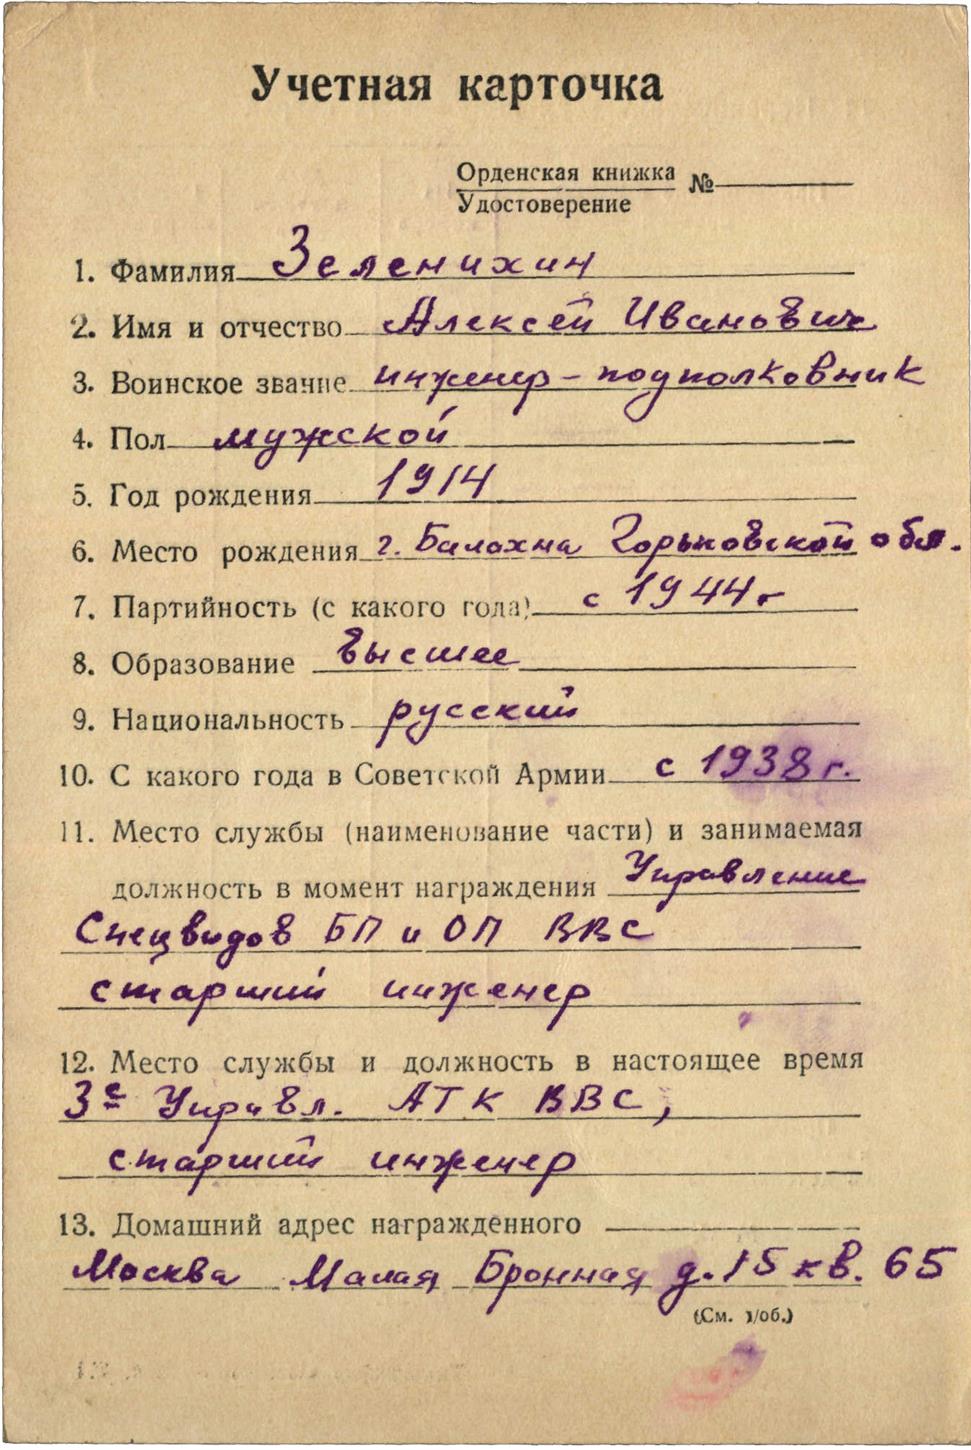 Учетная карточка
Орденская книжка №
Удостоверение
1. Фамилия Зеленихин
2. Имя и отчество Алексей Иванович
3. Воинское звание инженер-подполковник
4. Пол мужской
5. Год рождения 1914
6. Место рождения г. Балахна Горьковской обл.
7. Партийность (с какого года) с 1944 г
8. Образование высшее
9. Национальность русский
10. С какого года в Советской Армии с 1938 г.
11. Место службы (наименование части) и занимаемая
должность в момент награждения Управление
Спецвидов БП и ОП ВВС
старший инженер
12. Место службы и должность в настоящее время
3е Управл. АТК ВВС,
старший инженер
13. Домашний адрес награжденного
Москва Малая Бронная д. 15 кв. 65
(См. н/об.)